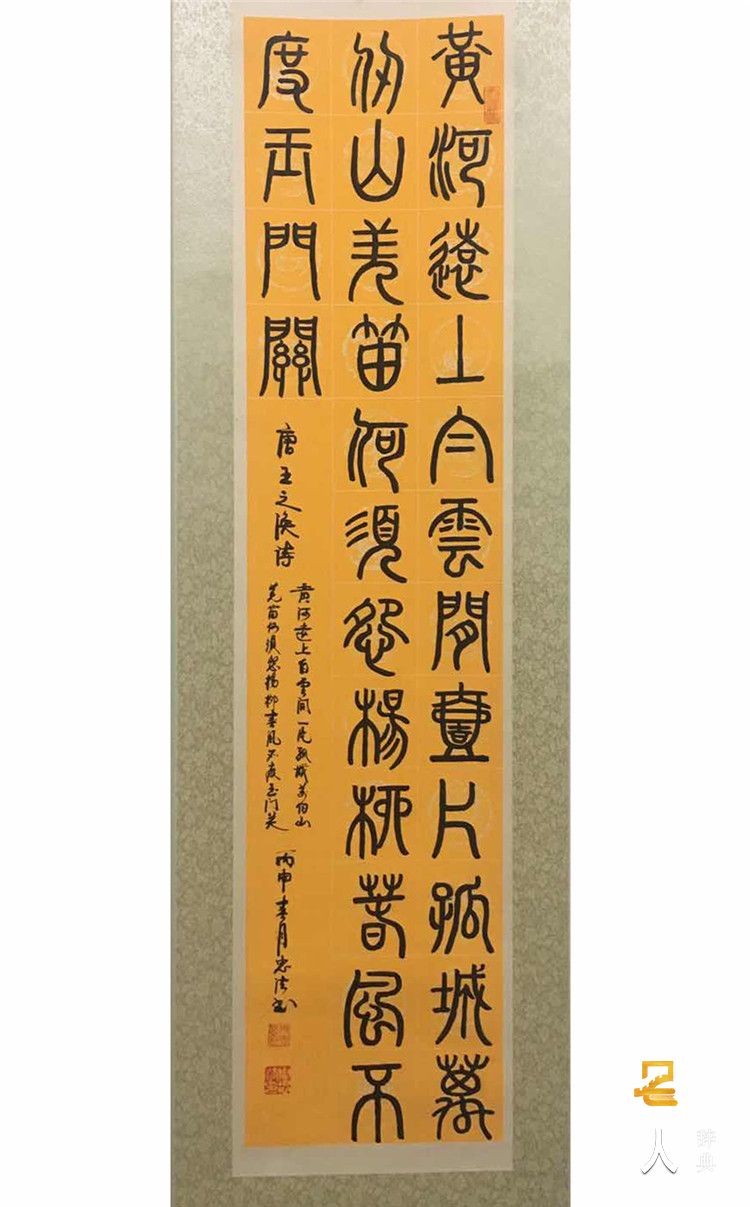 黃河遠上白雲間壹片孤城萬
仞山羌笛何須怨楊柳春風不
度玉門關
唐王之渙诗
黄河遠上白雲间一片孤城万仞山
羌笛何须怨楊柳春風不度玉门关
丙申春月忠法书
名人
辞典